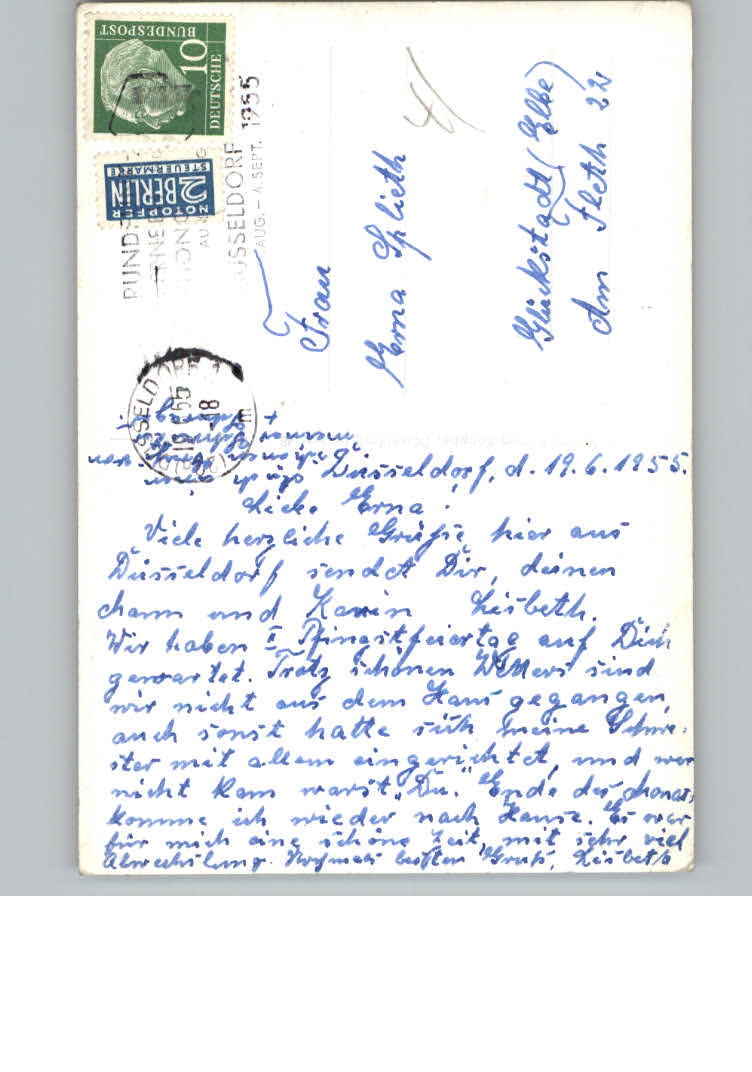 10
DEUTSCHE
BUNDESPOST
NOTOPFER
2 BERLIN
STEUERMARKE
DÜSSELDORF
AUG. – 4. SEPT. 1955
Frau
Erna Splieth
Glückstadt (Elbe)
Am Fleth 22
Düsseldorf, d. 19.6.1955.
Liebe Erna!
Viele herzliche Grüße hier aus
Düsseldorf sendet Dir, deinen
Mann und Karin Lisbeth.
Wir haben II Pfingstfeiertag auf Dich
gewartet. Trotz schönen Wetters sind
wir nicht aus dem Haus gegangen,
auch sonst hatte sich meine Schwe-
ster mit allem eingerichtet, und wer
nicht kam warst „Du." Ende des Monats
komme ich wieder nach Hause. Es war
für mich eine schöne Zeit, mit sehr viel
Abwechslung. Nochmals besten Gruß, Lisbeth